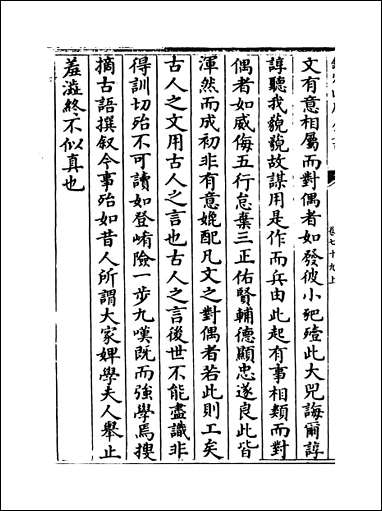 文有意相屬而對偶者如發彼小豝殪此大兕誨爾諄
諄聽我藐藐故謀用是作而兵由此起有事相類而對
偶者如威侮五行怠棄三正佑賢輔德顯忠遂良此皆
渾然而成初非有意媲配凡文之對偶者若此則工矣
古人之文用古人之言也古人之言後世不能盡識非
得訓切殆不可讀如登崤險一步九嘆既而強學焉搜
摘古語撰叙今事殆如昔人所謂大家婢學夫人舉止
羞澁終不似真也
卷七十九上